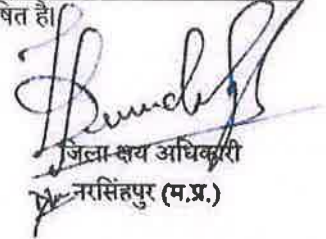 षित है।
जिला क्षय अधिकारी
नरसिंहपुर (म.प्र.)